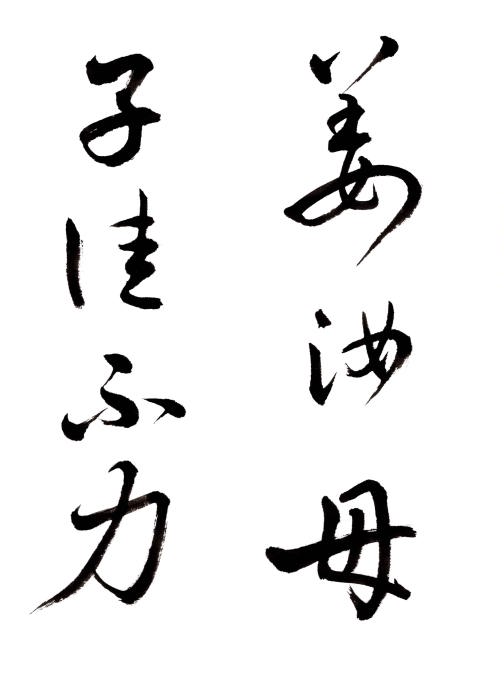 姜汝母
子佳不力